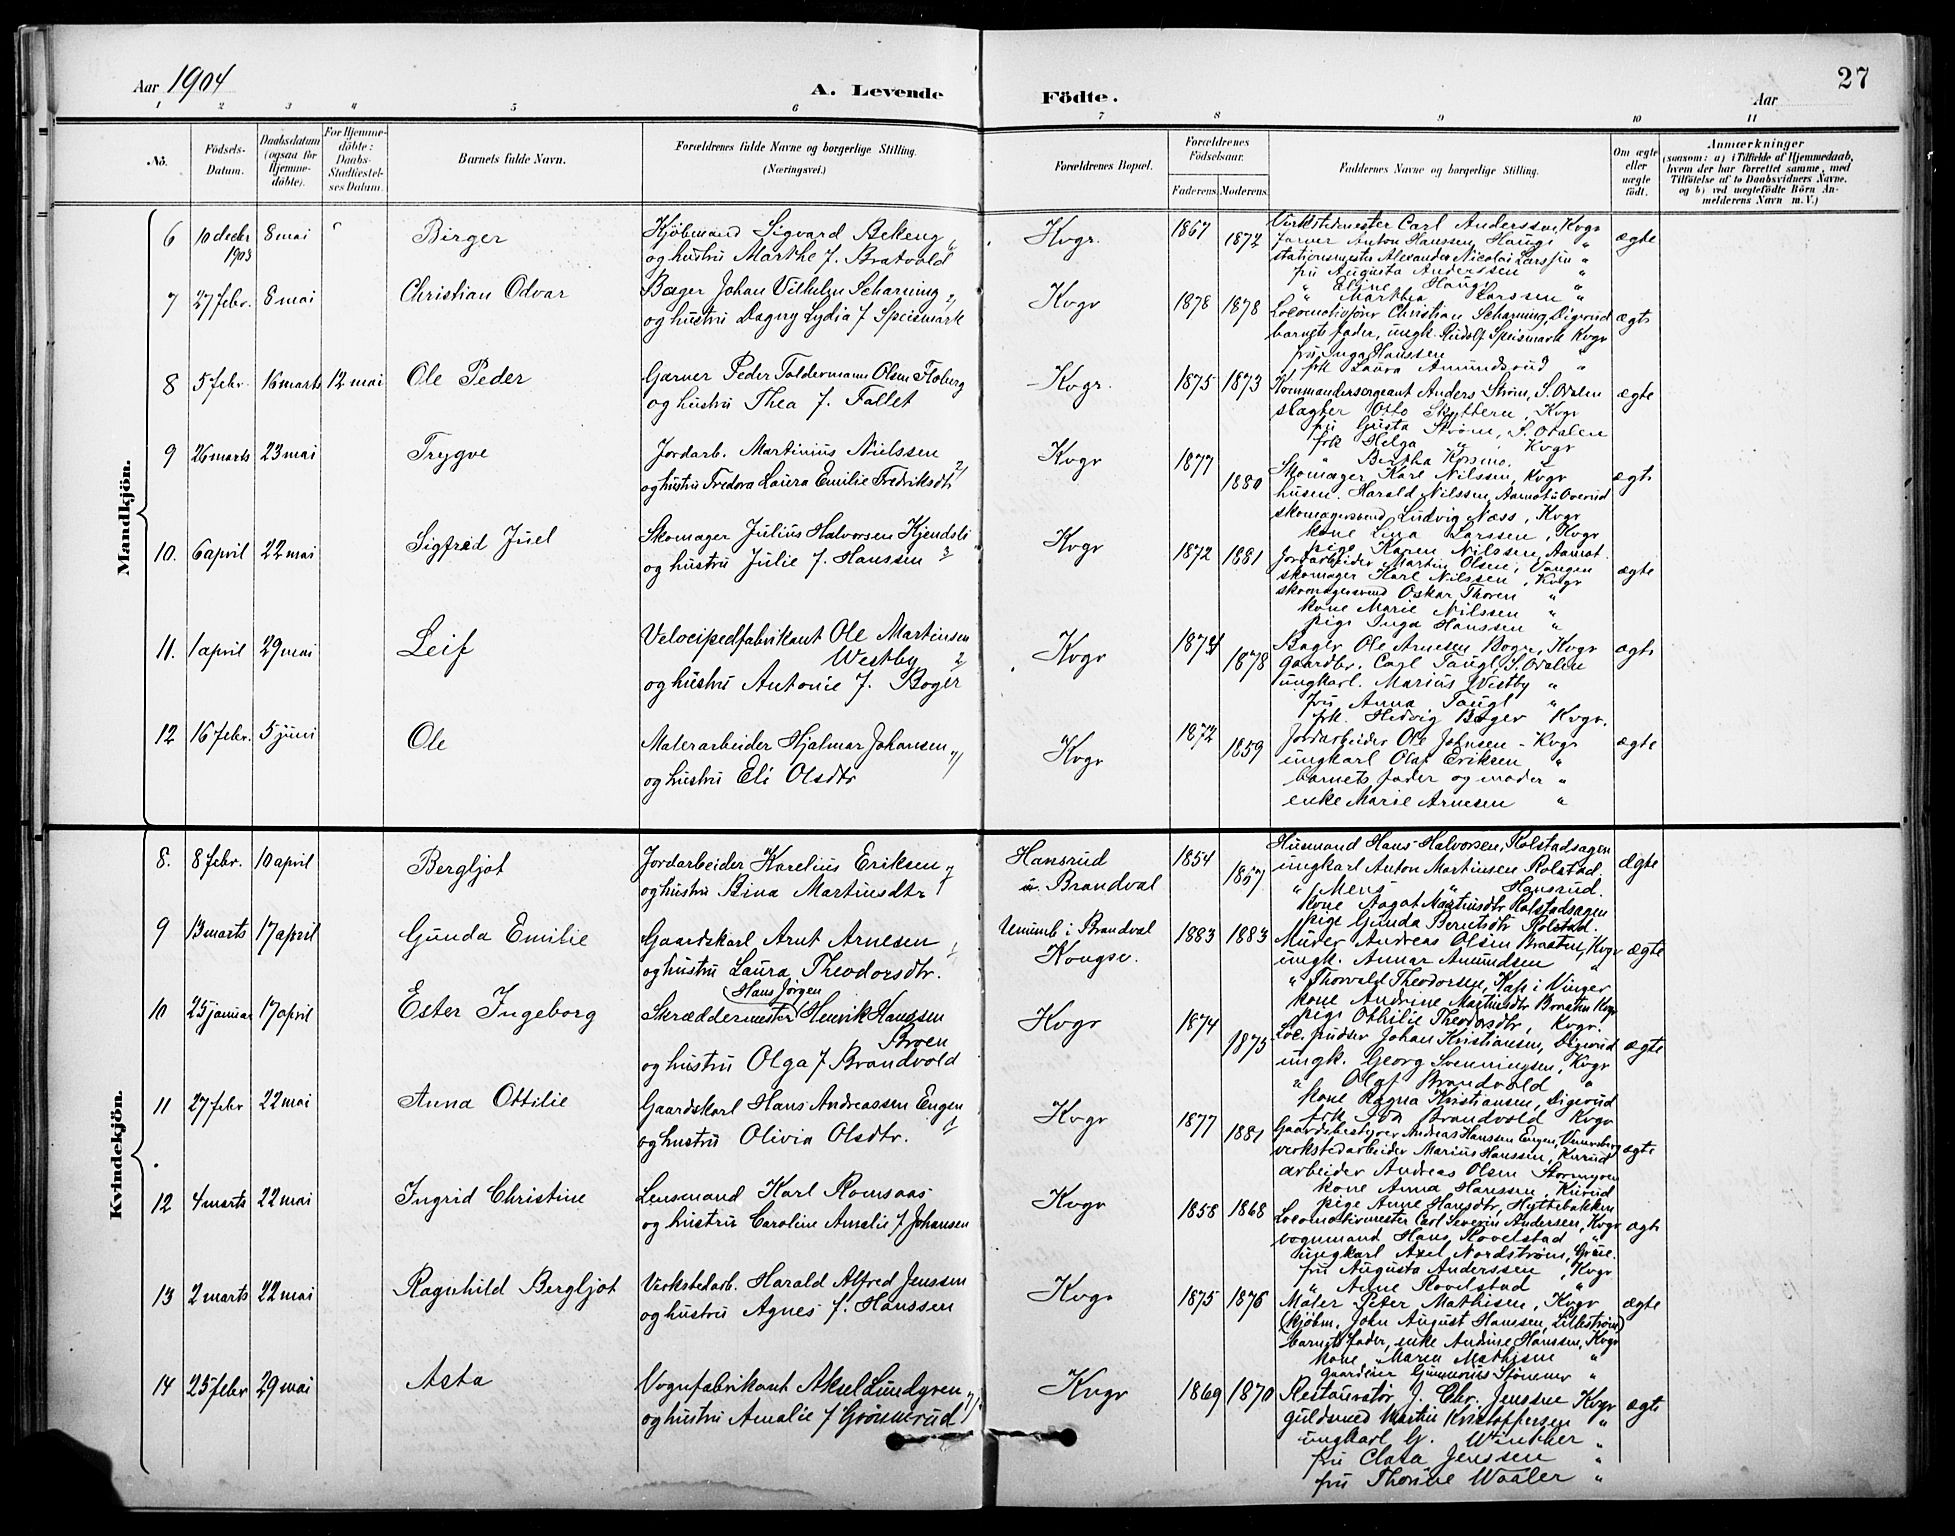 Aar 1904
A. Levende Födte.
27
Aar
1 2 3 4 5 6 7 8 9 10 11
No.
Födsels-Datum.
Daabsdatum (ogsaa for Hjemme-döbte).
For Hjemme-döbte: Daabs-Stadfæstel-ses Datum.
Barnets fulde Navn.
Forældrenes fulde Navne og borgerlige Stilling. (Næringsvei.)
Forældrenes Bopæl.
Forældrenes Födselsaar.
Faderens. Moderens.
Faddernes Navne og borgerlige Stilling.
Om ægte eller uægte födt.
Anmærkninger
(saasom: a) i Tilfælde af Hjemmedaab,
hvem der har forrettet samme, med
Tilföielse af to Daabsvidners Navne,
og b) ved uegtefödte Börn An-
melderens Navn m. V.)
Mandkjön.
6 10 decbr 1903 8 mai Birger
Kjöbmand Sigvard Bekeng
og hustru Marthe f. Bratvold
Kvgr. 1867 1872
Virkstedmester Carl Anderssen, Kvgr
farver Anton Hanssen Hauge "
stationsmester Alexander Nicolai Larssen "
fru Augusta Anderssen "
" Eline Hauge "
" Marthea Larssen "
ægte
7 27 febr. 8 mai Christian Odvar
Bager Johan Vilhelm Scharning
og hustru Dagny Lydia f. Speismark
Kvgr 1878 1878
Locomotivförer Christian Scharning, Digerud
barnets fader, ungk. Rudolf Speismark Kvgr
fru Inga Hanssen "
frk Laura Amundsrud "
ægte
8 5 febr. 16 marts 12 mai Ole Peder
Garver Peder Toldermann Olsen Floberg
og hustru Thea f. Fallet
Kvgr. 1875 1873
Kommandersergeant Anders Ström, S. Odalen
slagter Otto Skyttern, Kvgr
fru Gusta Ström, S. Odalen
frk Helga " , Kvgr
" Bertha Kosmo "
ægte
9 26 marts 23 mai Trygve
Jordarb. Martinius Nielssen
og hustru Fredora Laura Emilie Fredriksdtr
Kvgr 1877 1880
Skomager Karl Nilssen, Kvgr
husm. Harald Nilssen, Aamot i Overud
skomagersvend Ludvig Næss, Kvgr
kone Lina Larssen, Kvgr
pige Karen Nilssen, Aamot.
ægte
10. 6 april 22 mai Sigfred Juel
Skomager Julius Halvorsen Kjendsli
og hustru Julie f. Hanssen
Kvgr 1872 1881
Jordarbeider Martin Olsen, Vangen
skomager Karl Nilssen, Kvgr
skomagersvend Oskar Thoren "
kone Marie Nilssen "
pige Inga Hanssen "
ægte
11. 1 april 29 mai Leif
Velocipedfabrikant Ole Martinsen
Westby
og hustru Antonie f. Boger
Kvgr 1874 1878
Bager Ole Arnesen Bogen, Kvgr
gaardbr. Carl Taugl, S. Odalen
ungkarl. Marius Westby "
fru Anna Taugl "
frk. Hedvig Boger Kvgr.
ægte
12 16 febr. 5 juni Ole
Malerarbeider Hjalmar Johansen
og hustru Eli Olsdtr
Kvgr 1872 1859
Jordarbeider Ole Johnsen - Kvgr
ungkarl Olaf Eriksen "
barnets fader og moder "
enke Marie Arnesen "
ægte
Kvindekjön.
8. 8 febr. 10 april Bergljot
Jordarbeider Karelius Eriksen
og hustru Bina Martinsdtr
Hansrud
i Brandval
1854 1857
Husmand Hans Halvorsen, Rolstadsagen
ungkarl Anton Martinsen Rolstad.
" Mens " Hansrud.
Kone Aagot Martinsdtr Rolstadsagen
pige Gunda Berntsdtr Rolstad.
ægte
9 13 marts 17 april Gunda Emilie
Gaardskarl Arnt Arnesen
og hustru Laura Theodorsdtr.
Umumb i Brandval
Kongsv.
1883 1883
Murer Andreas Olsen Braaten, Kvgr
ungk. Annar Amundsen "
" Thorvald Theodorsen, Kap i Vinger
kone Andrine Martinsdtr Braaten Kvgr
pige Othilie Theodorsdtr, Kvgr.
ægte
10 25 januar 17 april Ester Ingeborg
Hans Jörgen
Skræddermester Henrik Hanssen
Broen
og hustru Olga f Brandvold
Kvgr 1874 1875
Loc. pudser Johan Kristiansen, Digerud
ungk. Georg Svenningsen, Kvgr
" Olaf Brandvold "
kone Ragna Kristiansen, Digerud
frk Ida Brandvold Kvgr
ægte
11 27 febr 22 mai Anna Ottilie
Gaardskarl Hans Andreassen Engen
og hustru Olivia Olsdtr.
Kvgr 1877 1881
Gaardsbestyrer Andreas Hanssen Engen, Vinnersberg
verkstedarbeider Marius Hanssen, Kurud
arbeider Andreas Olsen Stormyren
kone Anna Hanssen, Kurud
pige Anne Hansdtr, Hyttebakken
ægte
12 4 marts 22 mai Ingrid Christine
Lensmand Karl Romsaas
og hustru Caroline Amalie f Johansen
Kvgr 1858 1868
Locomotivmester Carl Severin Andersen, Kvgr
vognmand Hans Rovelstad "
ungkarl Axel Nordström, Grue.
fru Augusta Anderssen, Kvgr
" Anne Rovelstad "
ægte
13 2 marts 22 mai Ragnhild Bergljot
Verkstedarb. Harald Alfred Jenssen
og hustru Agnes f. Hanssen
Kvgr 1875 1876
Maler Peter Mathisen, Kvgr
(kjöbm. John August Hanssen, Lilleström)
barnets fader, enke Andrine Hanssen, Kvgr
kone Maren Mathisen "
ægte
14 25 febr 29 mai Asta
Vognfabrikant Aksel Lundgren
og hustru Amalie f Grönnerud
Kvgr 1869 1870
Restauratör J. Chr. Jenssen Kvgr
guldsmed Martin Kristoffersen "
ungkarl G. Winther "
fru Clara Jenssen "
fru Thorine Waaler "
ægte